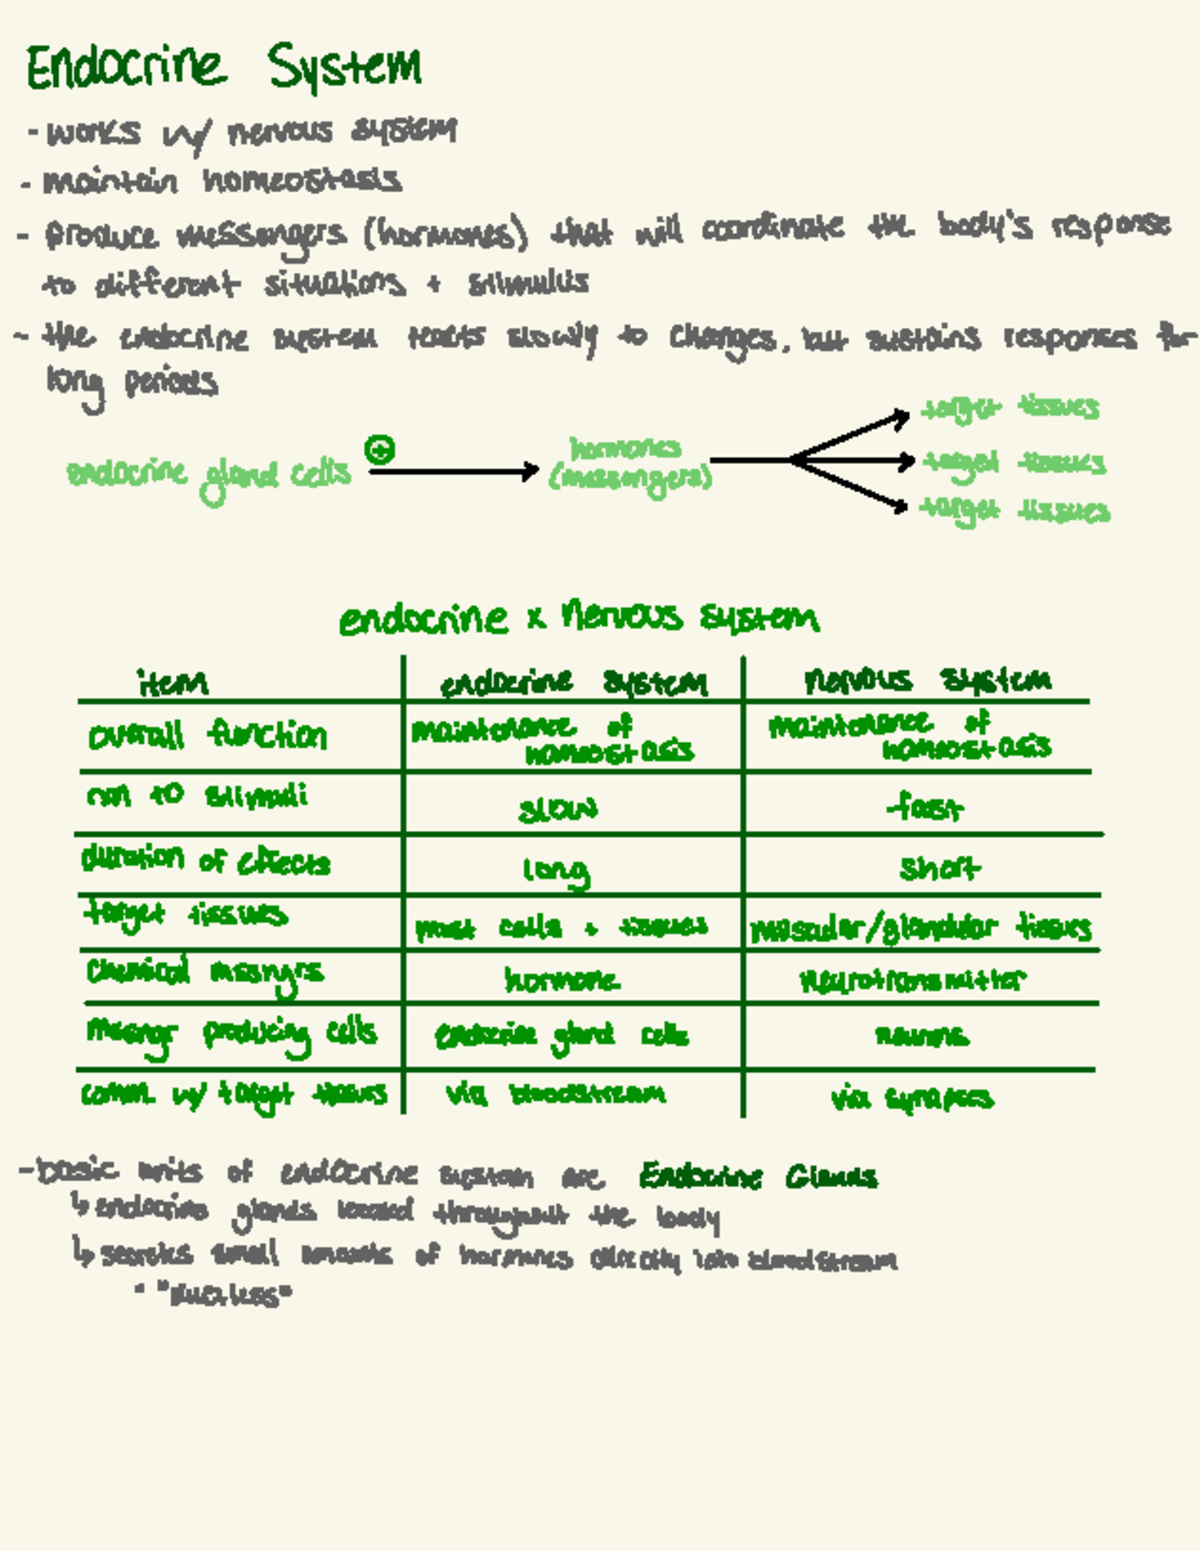 Endocrine System
- works w/ nervous system
- maintain homeostasis
- produce messengers (hormones) that will coordinate the body's response
to different situations + stimulus
- the endocrine system reacts slowly to changes, but sustains responses for
long periods
endocrine gland cells + hormones (messengers) target tissues
target tissues
target tissues
endocrine x nervous system
item endocrine system nervous system
overall function maintenance of homeostasis maintenance of homeostasis
rxn to stimuli slow fast
duration of effects long short
target tissues most cells + tissues muscular/glandular tissues
chemical mssngrs hormone neurotransmitter
mssngr producing cells endocrine gland cells neurons
comm. w/ target tissues via bloodstream via synapses
- basic units of endocrine system are Endocrine Glands
↳ endocrine glands located throughout the body
↳ secretes small amounts of hormones directly into bloodstream
• "ductless"